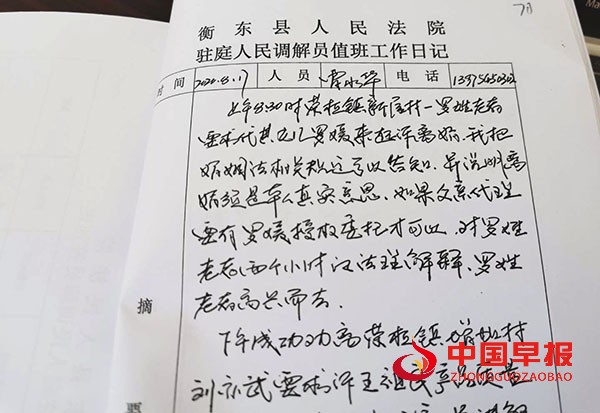 78
衡东县人民法院
驻庭人民调解员值班工作日记
时间 2020.8.17 人员 电话
上午8:30时荣桓镇新居村一罗姓老者
要求代其女儿罗媛来起诉离婚,我把
婚姻法相关规定予以告知。并说明离
婚须是本人真实意思。如果父亲代理
要有罗媛授权委托才可以,对罗姓
老者两个小时汉法理解释,罗姓
老者高兴而去。
摘
下午成功劝高荣桓镇 村
刘亦武要求评王祖民
要
中国早报
ZHONGGUOZAOBAO